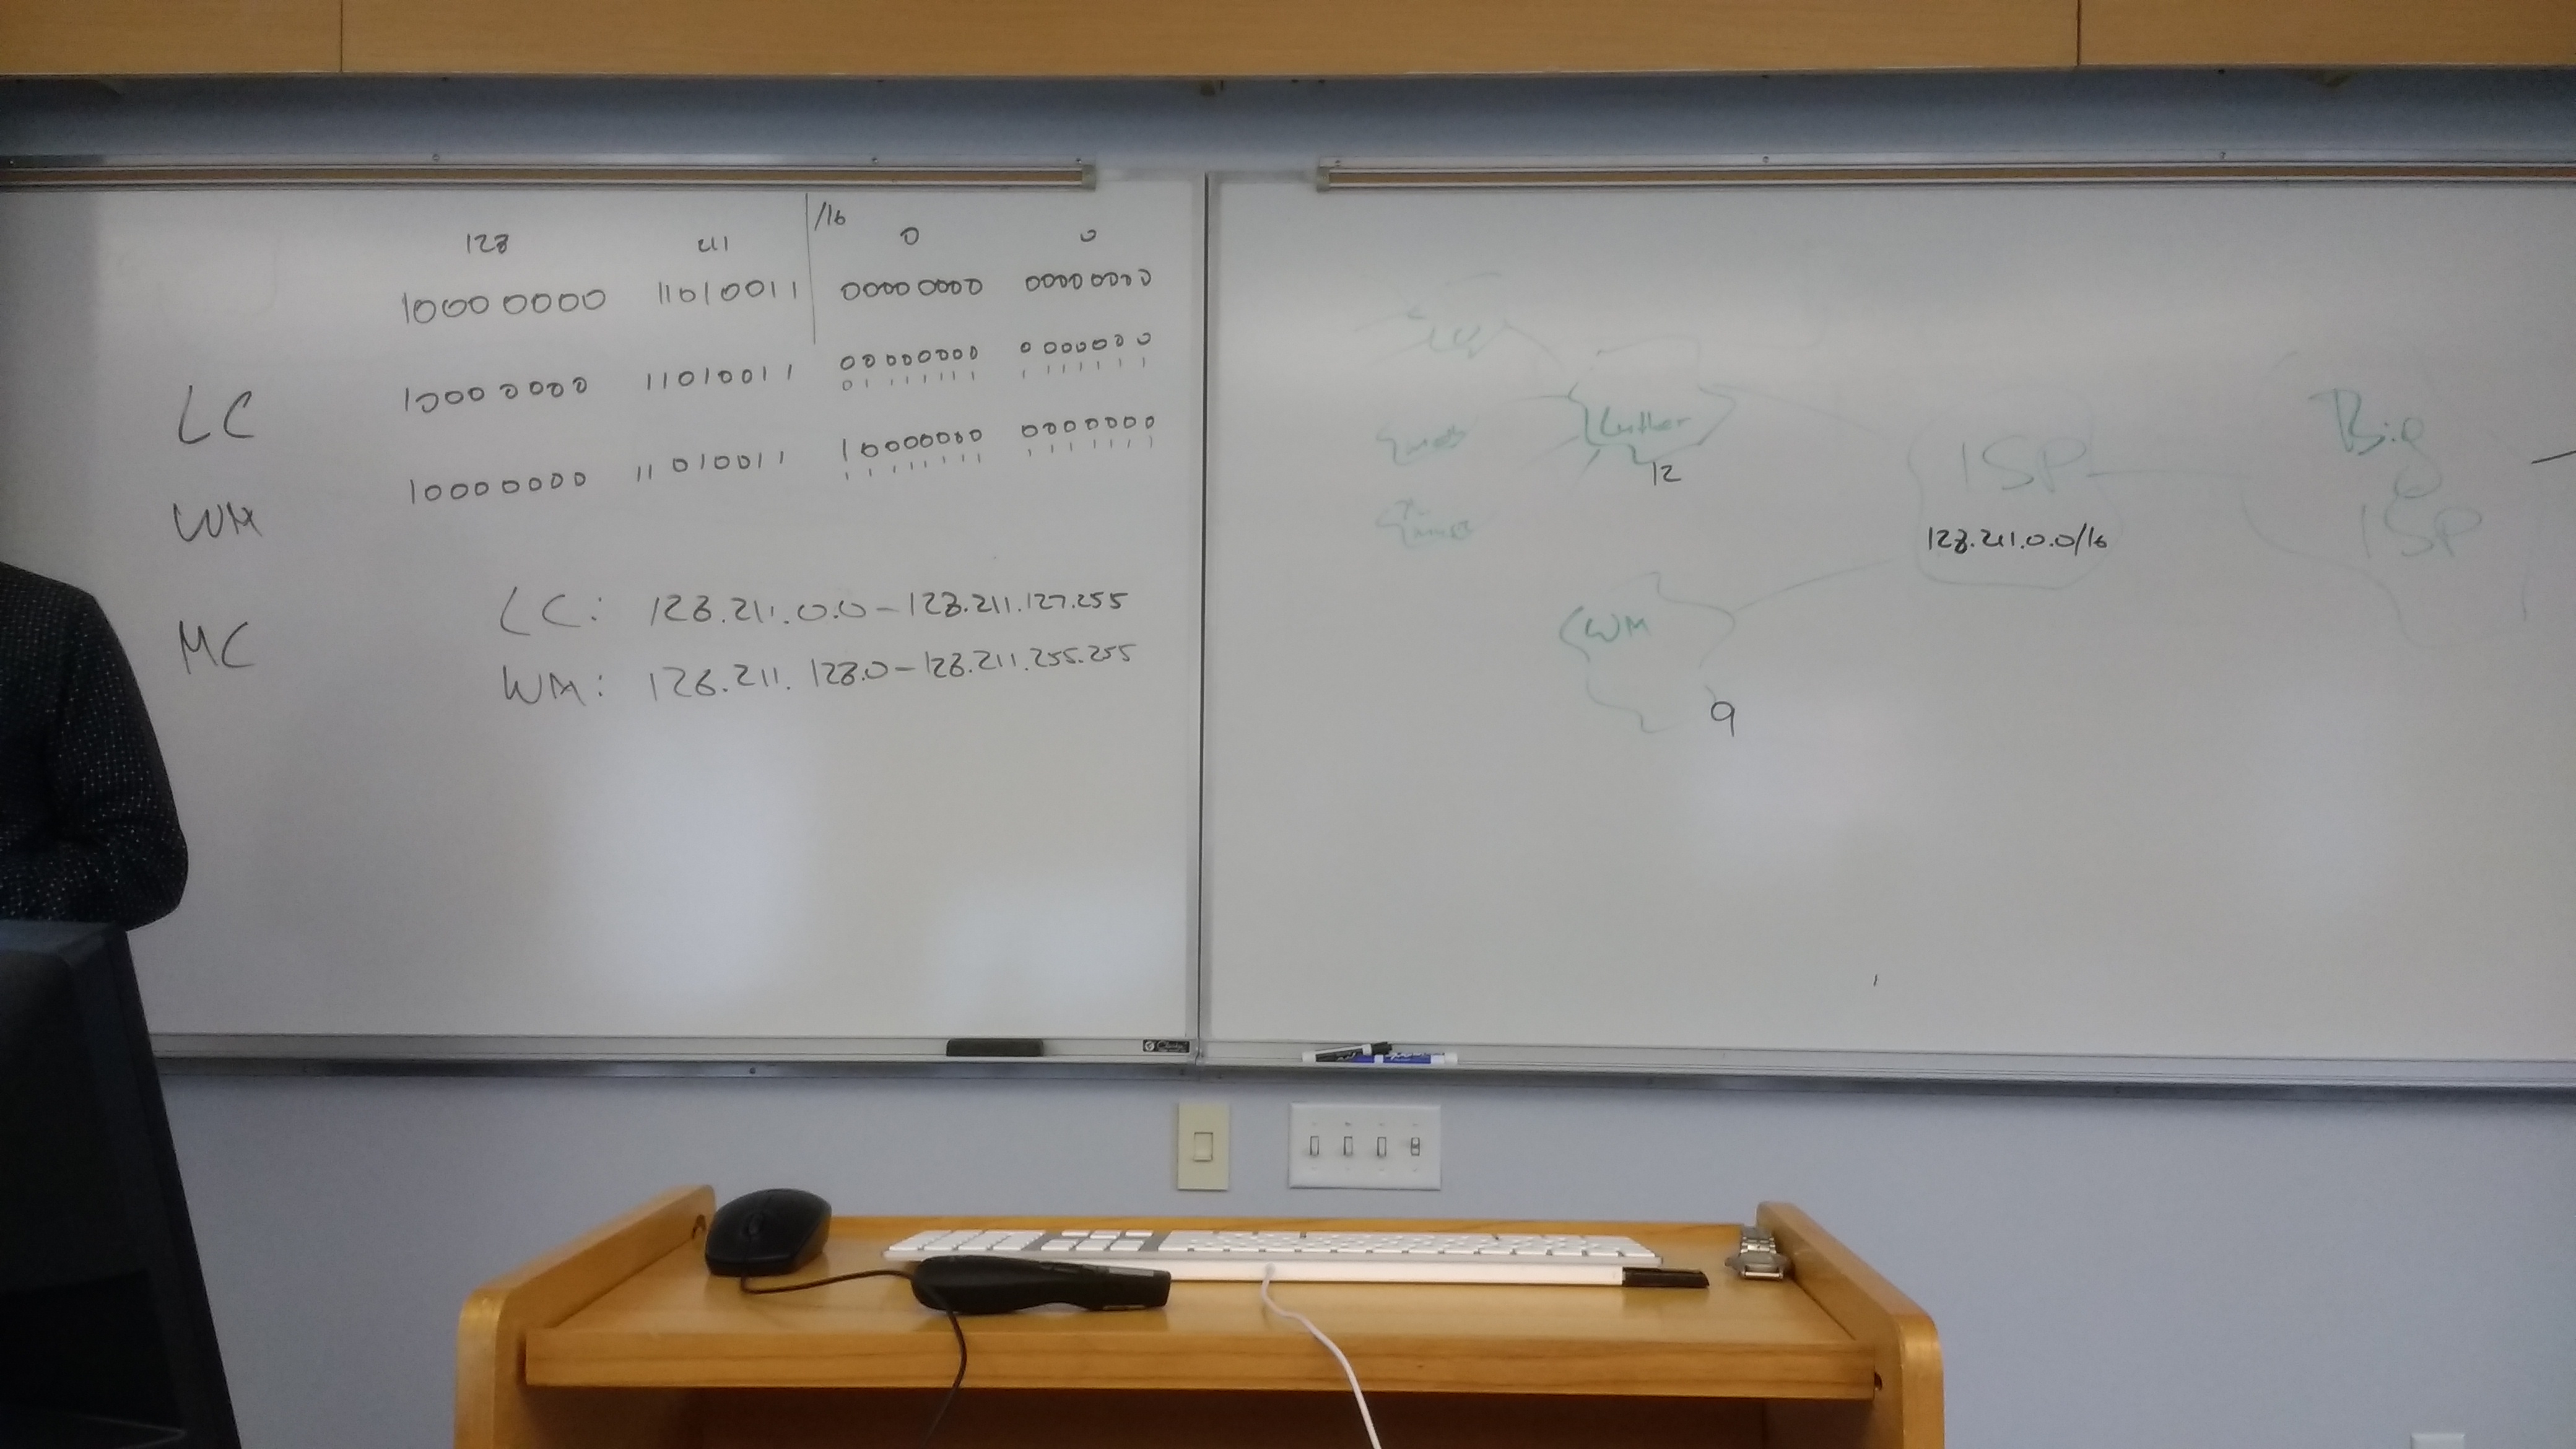 /16
128 211 0 0
10000000 11010011 00000000 00000000
LC 10000000 11010011 00000000 0000000
01111111 1111111
WM 10000000 11010011 10000000 00000000
11111111 1111111
MC
LC: 128.211.0.0-128.211.127.255
WM: 128.211.128.0-128.211.255.255
Luther
12
ISP
128.211.0.0/16
Big
ISP
WM
9